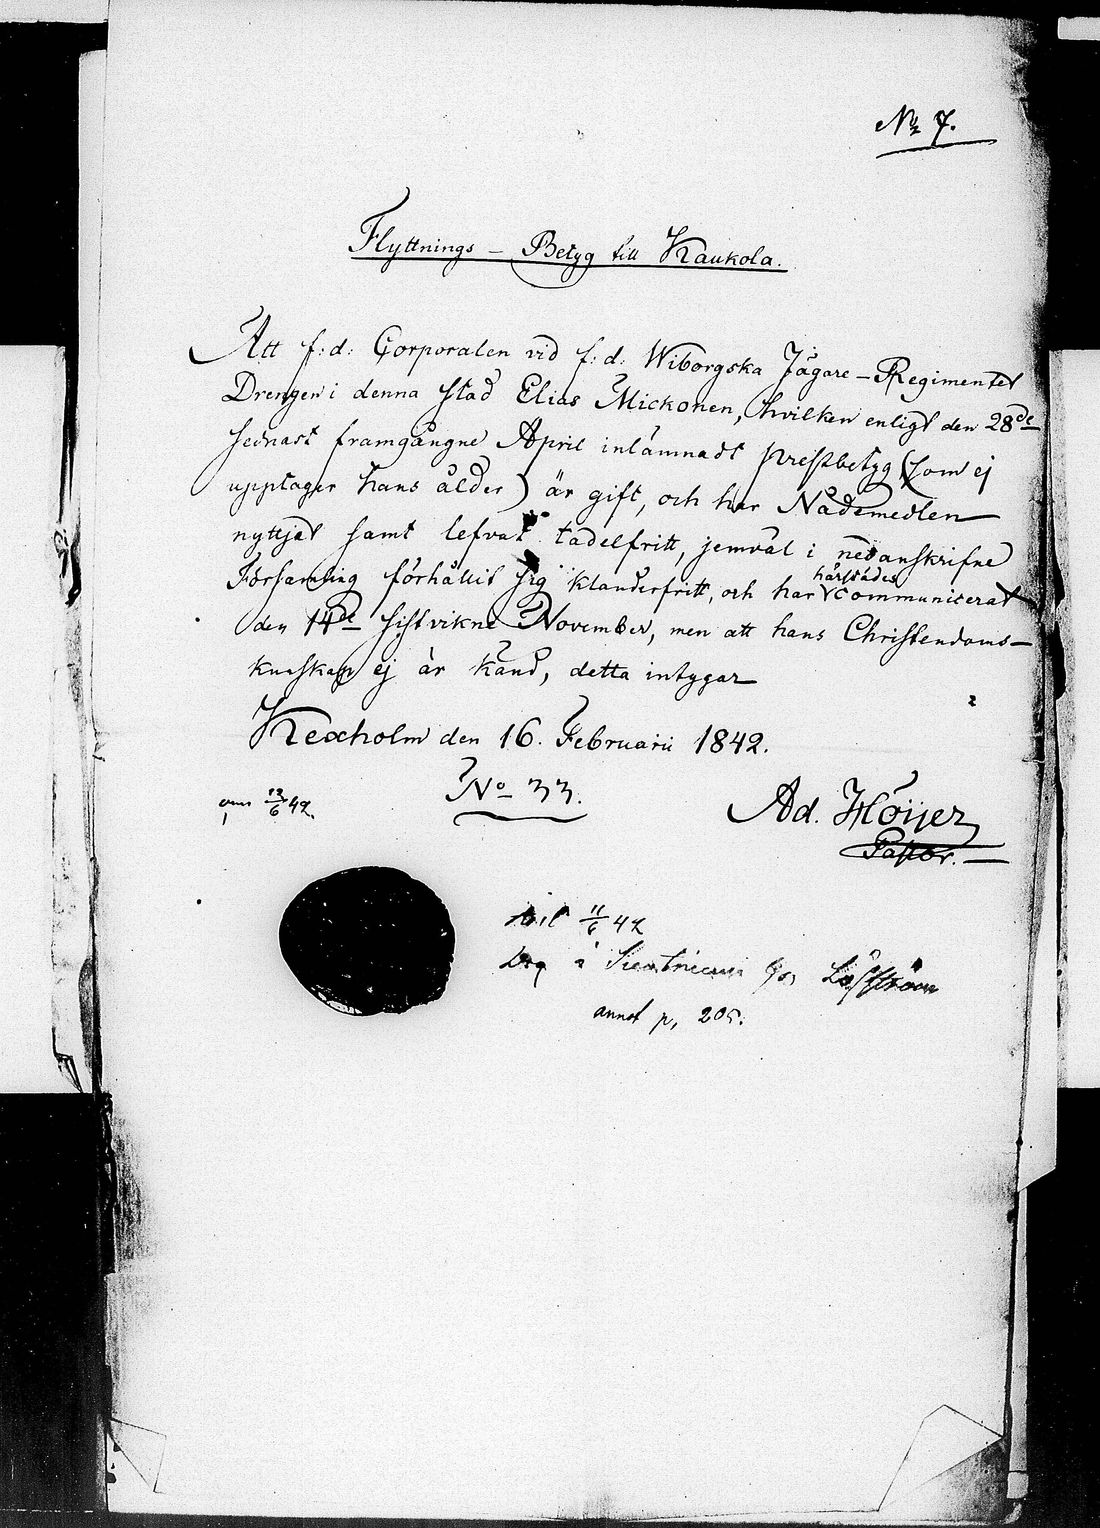 No 7.
Flyttnings - Betyg till Kaukola.
Att f:d: Corporalen vid f:d: Wiborgska Jägare-Regimentet
Drengen i denna stad Elias Mickonen, hvilken enligt den 28de
sednast framgångne April inlämnadt prestbetyg (som ej
upptager hans ålder) är gift, och har Nådemedlen
nyttjat samt lefvat tadelfritt, jemväl i nedanskrifne
Församling förhållit sig klanderfritt, och har härstädes communicerat
den 14de sistvikne November, men att hans Christendoms-
kunskap ej är känd, detta intygar
Kexholm den 16. Februarii 1842.
No 33.
12/6 42.
Ad. Höijer
Pastor.
11/6 42
Drg å hos Löfström
annot p, 205.